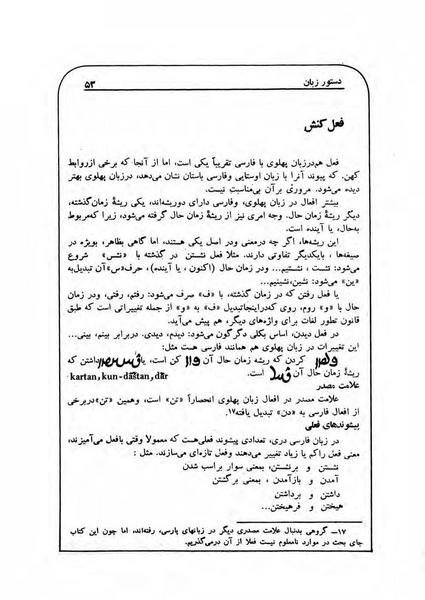 دستور زبان ۵۳
فعل کنش
فعل هم‌درزبان پهلوی با فارسی تقریباً یکی است، اما از آنجا که برخی ازروابط
کهن. که پیوند آنرا با زبان اوستایی وفارسی باستان نشان می‌دهد، درزبان پهلوی بهتر
دیده می‌شود. مروری برآن بی‌مناسبت نیست.
بیشتر افعال در پهلوی، وفارسی دارای دوریشه‌اند، یکی ریشهٔ زمان‌گذشته،
دیگر ریشهٔ زمان حال. وجه امری نیز از ریشهٔ زمان حال گرفته می‌شود، زیراکه‌مربوط
به‌حال، یا آینده است.
این ریشه‌ها، اگر چه درمعنی ودر اصل یکی هستند، اما گاهی بظاهر، بویژه در
صیغه‌ها، بایکدیگر تفاوتی دارند. مثلا فعل نشستن در گذشته با «نشس» شروع
می‌شود: نشست ، نشستیم... ودر زمان حال (اکنون ، یا آینده)، حرف«س» آن تبدیل‌به
«ین» می‌شود: نشین،نشینیم...
یا فعل رفتن که در زمان گذشته، با «ف» صرف می‌شود: رفتم، رفتی، ودر زمان
حال با «و» روم، روی که‌دراینجاتبدیل «ف» به «و» از جمله تغییراتی است که طبق
قانون تطور لغات برای واژه‌های دیگر، هم پیش می‌آید.
در فعل دیدن، اساس بکلی دگرگون می‌شود: دیدم، دیدی. دربرابر بینم، بینی...
این تغییرات در زبان پهلوی هم همانند فارسی هست مثل:
کردن که ریشه زمان حال آن کن است، یا داشتن که
ریشهٔ زمان حال آن است. kartan, kun-dāštan, dār
علامت مصدر
علامت مصدر در افعال زبان پهلوی انحصاراً «تن» است، وهمین «تن»دربرخی
از افعال فارسی به «دن» تبدیل یافته۱۷.
پیشوندهای فعلی
در زبان فارسی دری، تعدادی پیشوند فعلی‌هست که معمولا وقتی بافعل می‌آمیزند،
معنی فعل راکم یا زیاد تغییر می‌دهند وفعل تازه‌ای می‌سازند. مثل :
نشستن و برنشستن، بمعنی سوار براسب شدن
آمدن و بازآمدن، بمعنی برگشتن
داشتن و برداشتن
هیختن و فرهیختن...
۱۷ــ گروهی بدنبال علامت مصدری دیگر در زبانهای پارسی، رفته‌اند، اما چون این کتاب
جای بحث در موارد نامعلوم نیست فعلا از آن درمی‌گذریم.